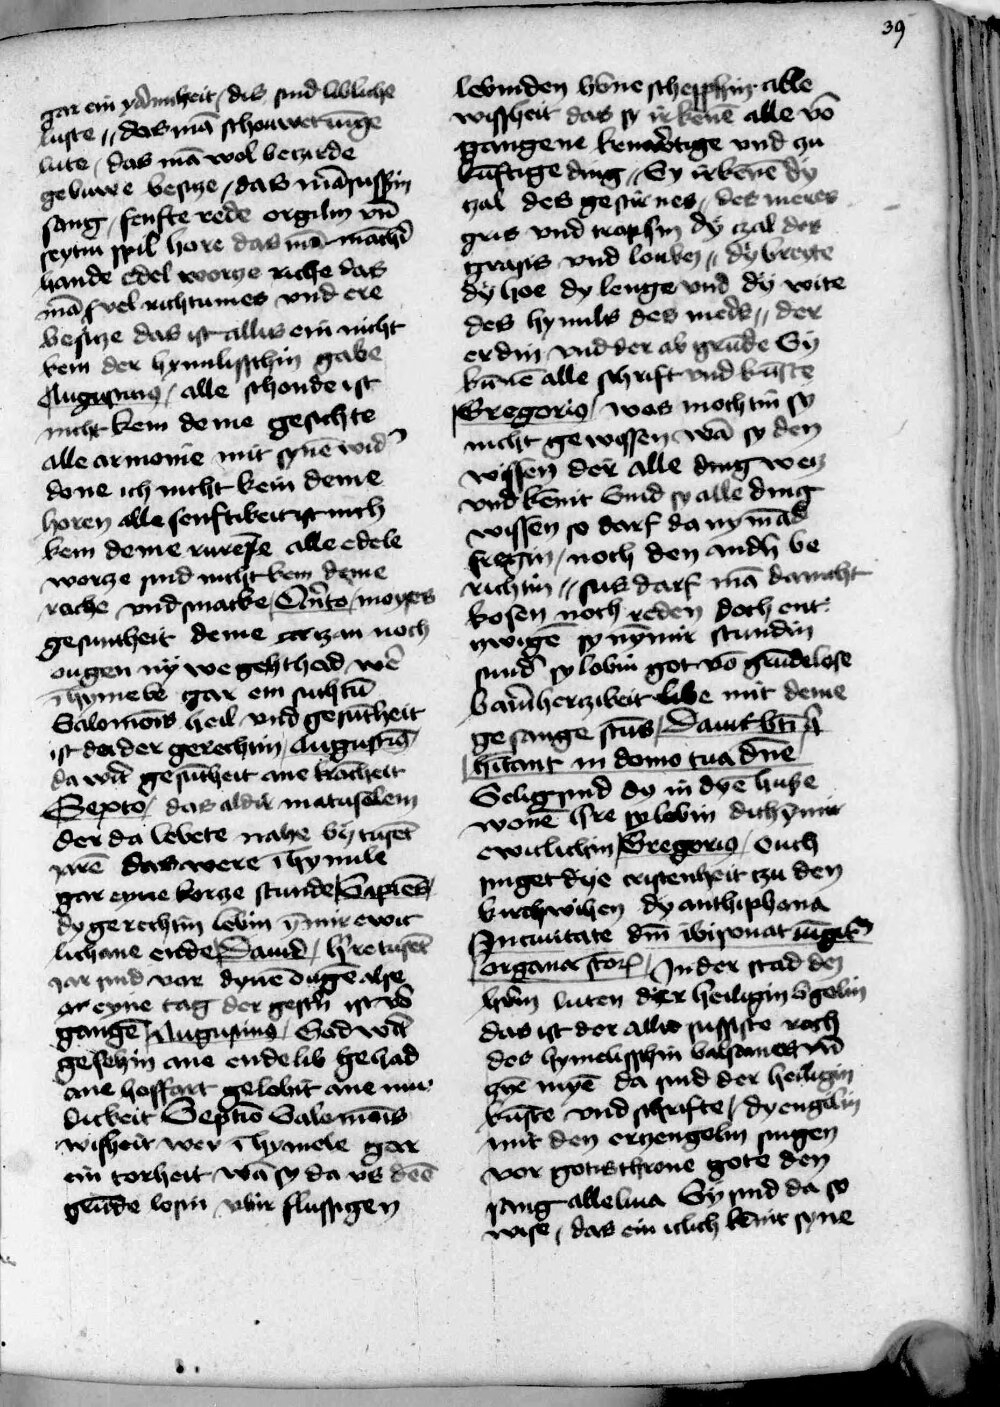 39
gar ein yamirheit / dis sind libliche
luste // das mā schouwet iunge
lute / das mā wol beczirde
gebuwe besicze / das mā sussin
sang / senfte rede orgiln vn̄
seytin spil hore das mā
hande edel worcze riche das
mā vel richtumes vnd ere
besicze das ist allis ein nicht
kein der hymmlisschin gabe
Augustinus / alle schonde ist
nicht kein deme gesichte
alle armonie mit synē
done ich nicht kein deme
horen alle senftikeit ist nich
kein deme alle edele
worcze sind nicht kein deme
rache vnd smacke / moyses
gesuntheit deme arczan noch
ougen ny we geht had / wē
ihymele gar ein suchtū
Salomōis heil vnd gesūtheit
ist da der gerechtin / Augustin9
da wirt gesūtheit ane krācheit
Septo / das aldir matusalem
der da lebete nahe by tusēt
jarē das were ihymile
gar eyne korcze stunde / Sapiēs
dy gerechtin lebin ȳmir ewic
lich ane ende / Dauid / tusēt
jar sind vor dynē ougē alse
eyne tag der gestn̄ ist
gangē / Augustinus / God wirt
gesehin ane ende lib gehad
ane hoffart gelobit ane mu
dickeit Septīo Salomōis
wisheit wer ihymele gar
ein torheit wā sy da vs dēē
grūde losin vbir flussigen
lebinden bōne scheppfin alle
wissheit das sy irkenē alle vō
gangene kenwᵉtige vnd zu
kūftige ding // Sy irkenē dy
czal des gestirnes / des meres
gris vnd trophin dy czal des
grasis vnd loubez // dy breyte
dy hoe dy lenge vnd dy wite
des hymils des meers // der
erdin vnd der ab grūde Sy
kūnē alle schrift vnd kūste
Gregorius / was mochtin sy
nicht gewissen wā sy den
wissen der alle ding weiz
vnd kēnit Sind sy alle ding
wissen so darf da nymād
fregin / noch den andn̄ be
richtin // sus darf mā da nicht
kosen noch reden doch ent
swigē sy nȳmir stundin
sundᵉ sy lobin got vō grūdelose
barmherczikeit libe mit deme
ge sange / Dauit bt̄i q̄
hītant in domo tua dn̄e
Selig sind dy in dynē huse
wonē sy lobin dich ȳmir
ewiclichin / Gregorius / Ouch
singet dye cristenheit czu den
kirchwihen dy anthiphona
In ciuitate dn̄i ibi sonat iūgitᵉ
organa sc̄orꝝ / In der stad dez
luten der heiligin orgelin
das ist der allir sussiste roch
des hymelisschin balsames vn̄
da sind der heiligin
kūste vnd schrifte / dy engilin
mit den erczengelin singen
vor gotis throne gote den
sang alleluia Sy sind da so
wise / das ein iclich kēnit syne